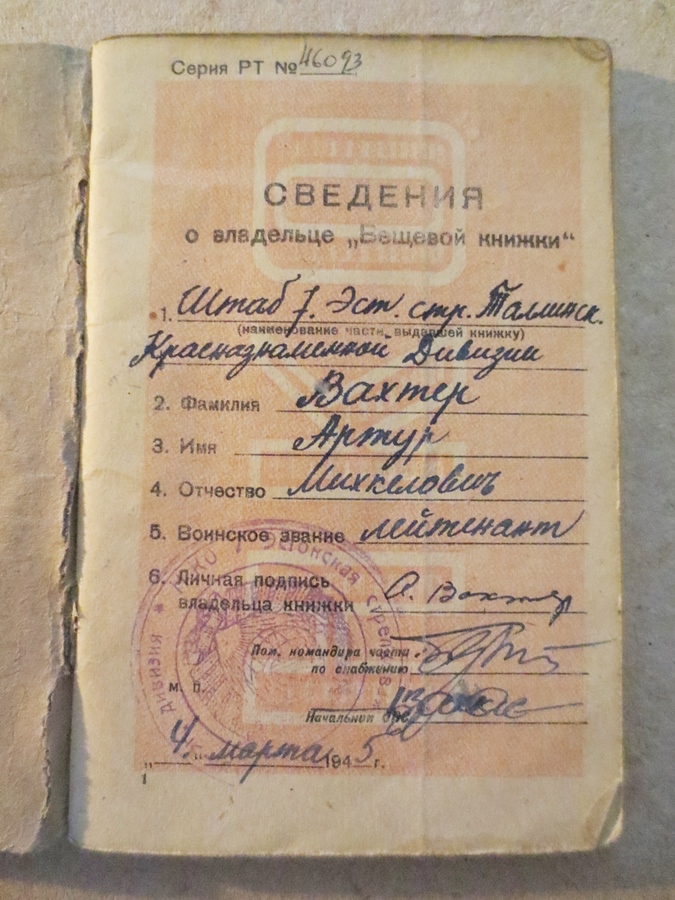 Серия РТ № 46093
СВЕДЕНИЯ
о владельце „Вещевой книжки“
1. Штаб 7. Эст. стр. Талинск.
(наименование части, выдавшей книжку)
Краснознаменной Дивизии
2. Фамилия Вахтер
3. Имя Артур
4. Отчество Михкелович
5. Воинское звание лейтенант
6. Личная подпись
владельца книжки А. Вахтер
Пом. командира части
по снабжению
М. П.
Начальник
„4.“ марта 1945 г.
1
НКО 7 Эстонская стрелков дивизия